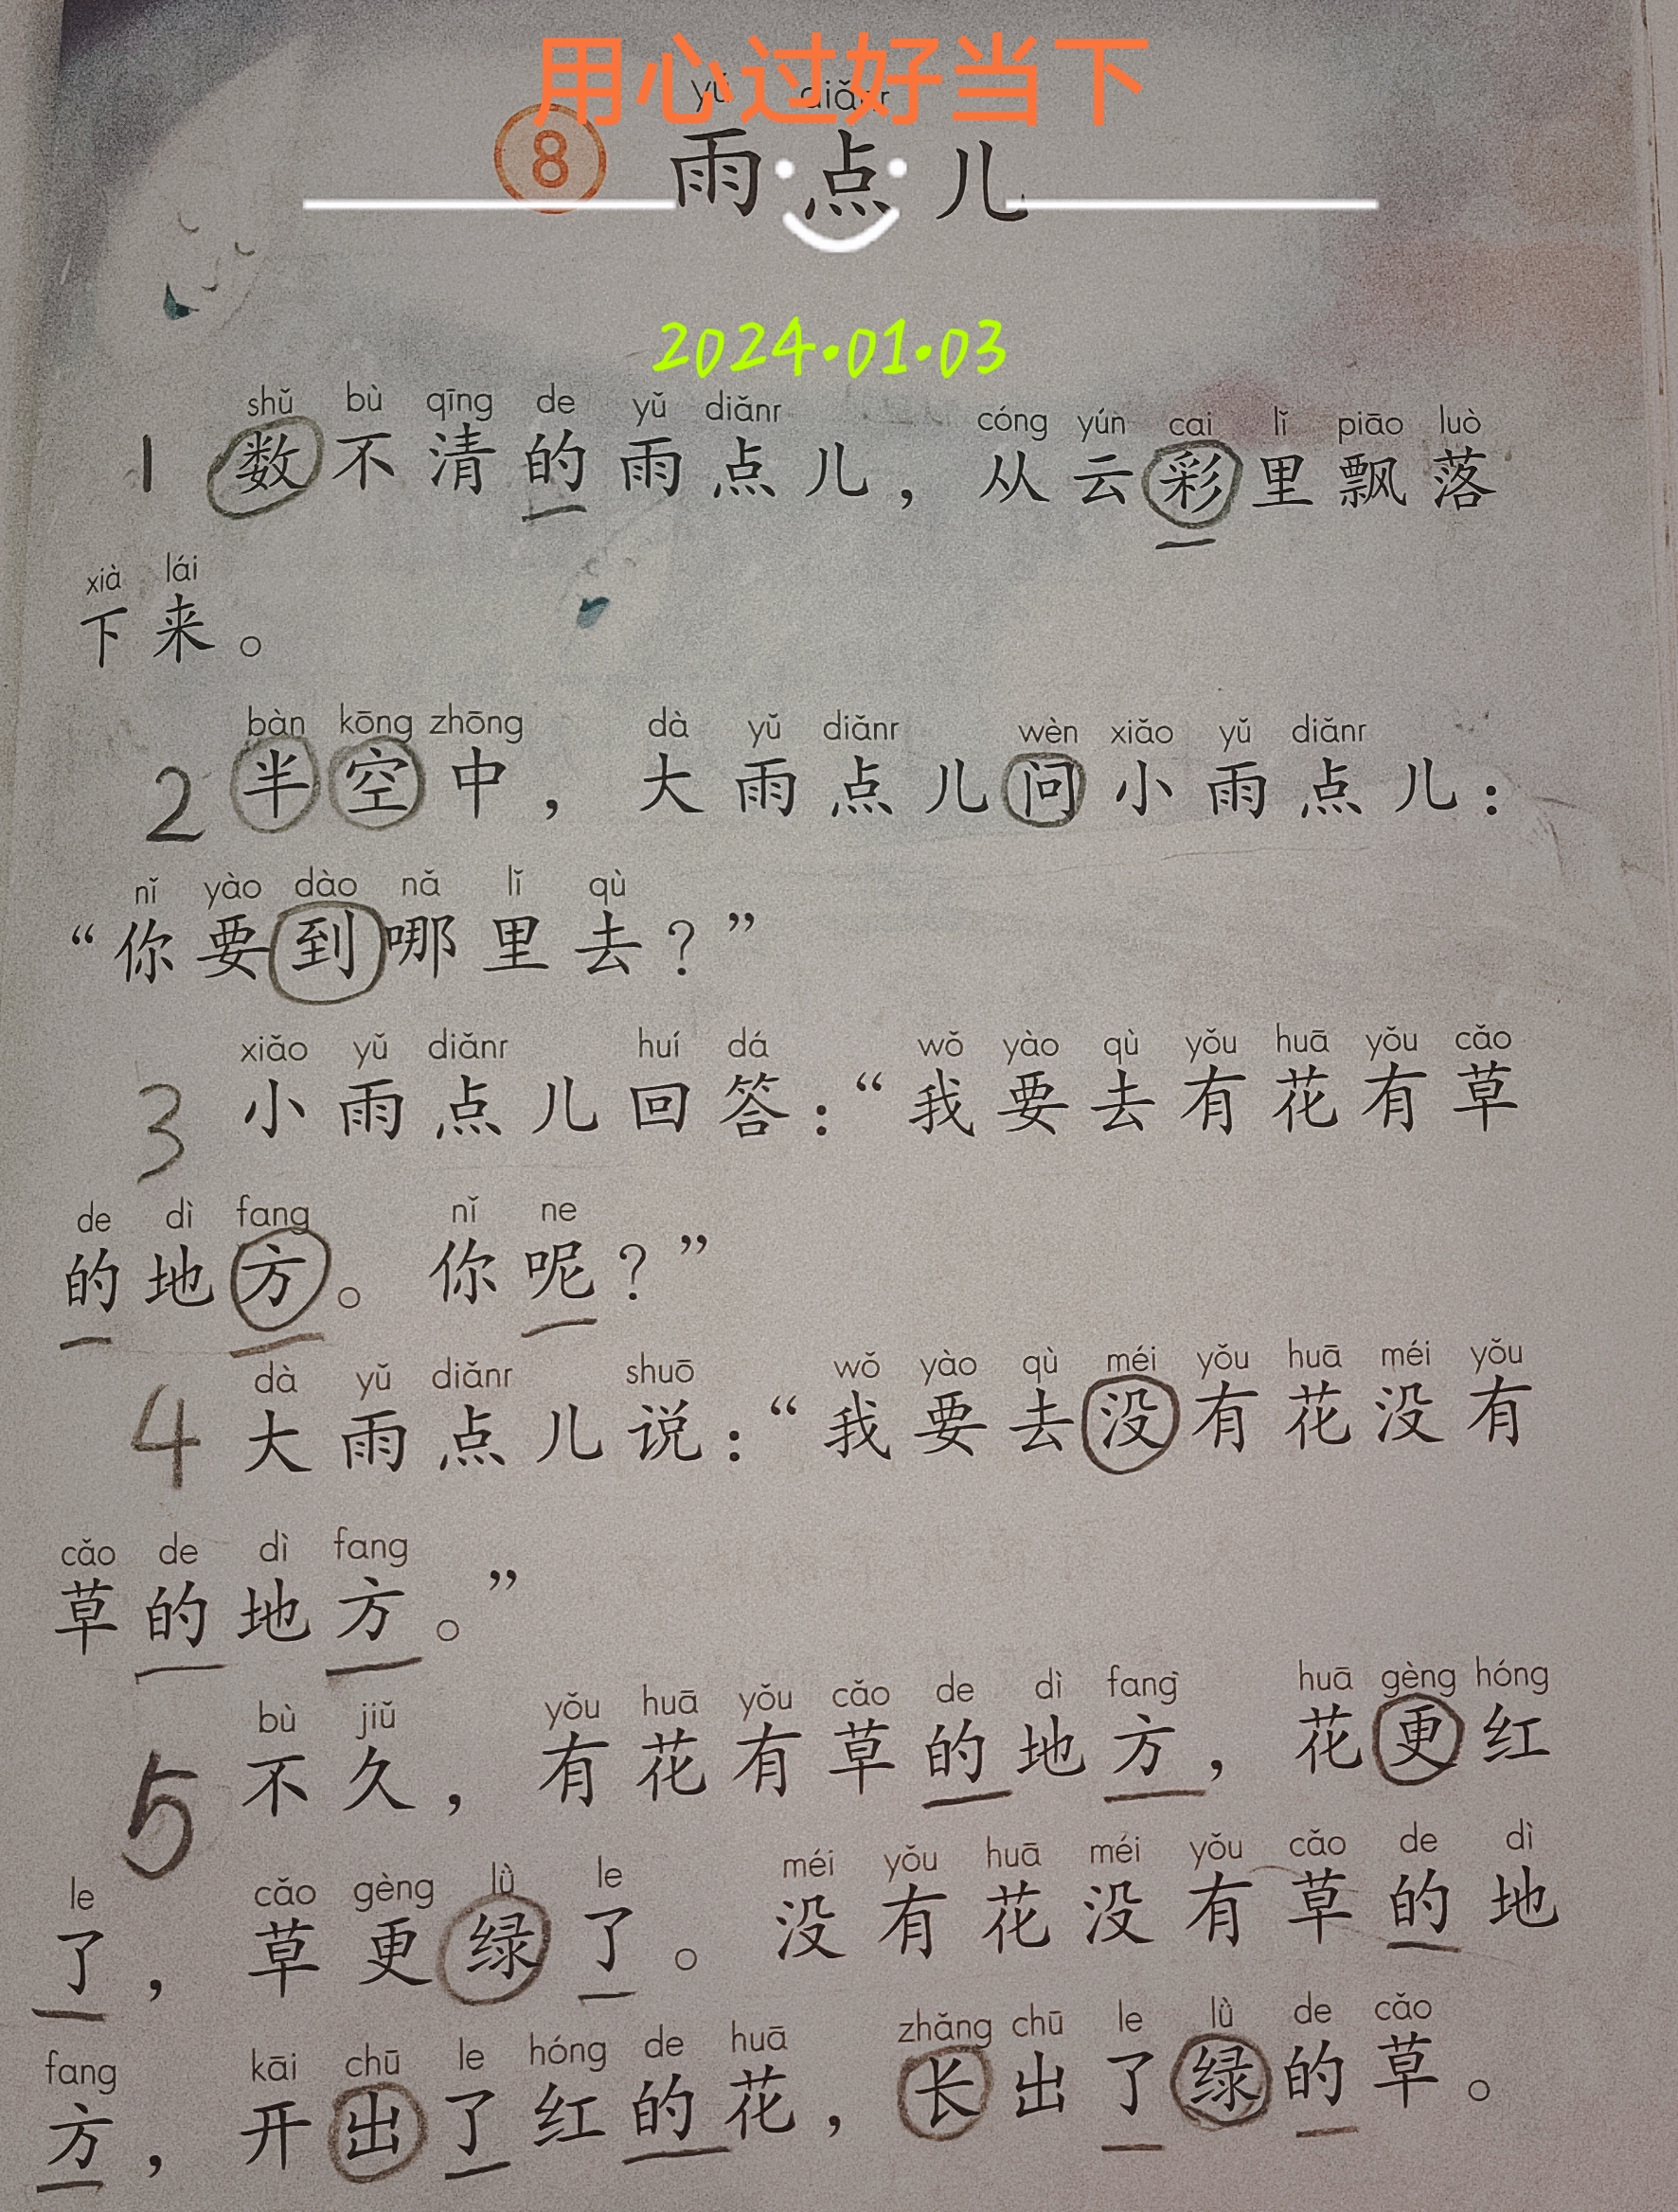 用心过好当下
yǔ diǎnr
8 雨点儿
2024·01·03
shǔ bù qīng de yǔ diǎnr cóng yún cai lǐ piāo luò
1 数不清的雨点儿，从云彩里飘落
xià lái
下来。
bàn kōng zhōng dà yǔ diǎnr wèn xiǎo yǔ diǎnr
2 半空中，大雨点儿问小雨点儿：
nǐ yào dào nǎ lǐ qù
“你要到哪里去？”
xiǎo yǔ diǎnr huí dá wǒ yào qù yǒu huā yǒu cǎo
3 小雨点儿回答：“我要去有花有草
de dì fang nǐ ne
的地方。你呢？”
dà yǔ diǎnr shuō wǒ yào qù méi yǒu huā méi yǒu
4 大雨点儿说：“我要去没有花没有
cǎo de dì fang
草的地方。”
bù jiǔ yǒu huā yǒu cǎo de dì fang huā gèng hóng
5 不久，有花有草的地方，花更红
le cǎo gèng lǜ le méi yǒu huā méi yǒu cǎo de dì
了，草更绿了。没有花没有草的地
fang kāi chū le hóng de huā zhǎng chū le lǜ de cǎo
方，开出了红的花，长出了绿的草。